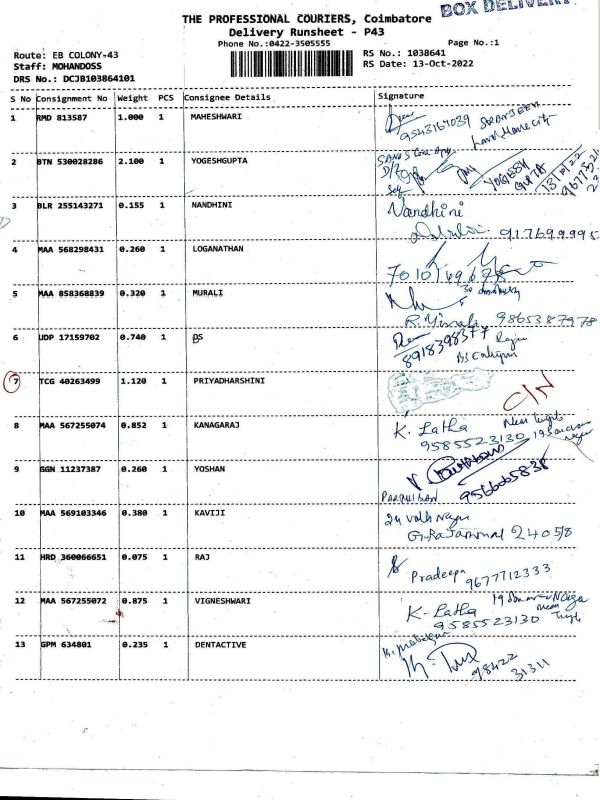 BOX DELIVERY
THE PROFESSIONAL COURIERS, Coimbatore
Delivery Runsheet - P43
Phone No.:0422-3505555
Page No.:1
Route: EB COLONY-43
Staff: MOHANDOSS
DRS No.: DCJB103864101
RS No.: 1038641
RS Date: 13-Oct-2022
S No Consignment No Weight PCS Consignee Details Signature
1 RMD 813587 1.000 1 MAHESHWARI
9543167039
2 BTN 530028286 2.100 1 YOGESHGUPTA
YOGESH GUPTA 13/10/22
3 BLR 255143271 0.155 1 NANDHINI Nandhini
917699995
4 MAA 568298431 0.260 1 LOGANATHAN
5 MAA 858368839 0.320 1 MURALI
9865387978
6 UDP 17159702 0.740 1 BS
8918398377
7 TCG 40263499 1.120 1 PRIYADHARSHINI
C/N
8 MAA 567255074 0.852 1 KANAGARAJ K. Latha
9585523130
9 GGN 11237387 0.260 1 YOSHAN
PARTHIBAN 9566665838
10 MAA 569103346 0.380 1 KAVIJI
11 HRD 360066651 0.075 1 RAJ
Pradeepa 9677712333
12 MAA 567255072 0.875 1 VIGNESHWARI
K-Latha
9585523130
13 GPM 634801 0.235 1 DENTACTIVE
98422
31311